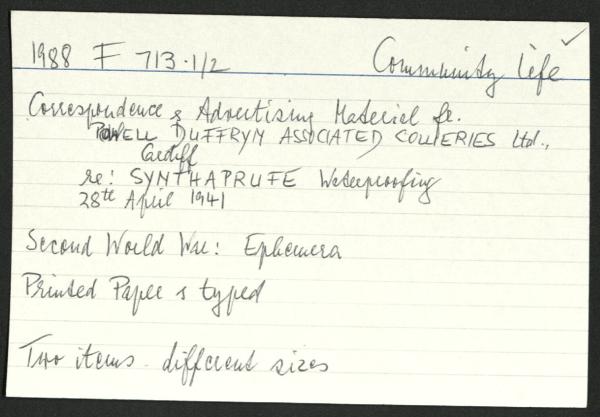 1988 F 713.1/2 Community life
Correspondence & Advertising Material fr.
POWELL DUFFRYN ASSOCIATED COLLIERIES Ltd.,
Cardiff
re: SYNTHAPRUFE Waterproofing
28th April 1941
Second World War: Ephemera
Printed Paper & typed
Two items - different sizes